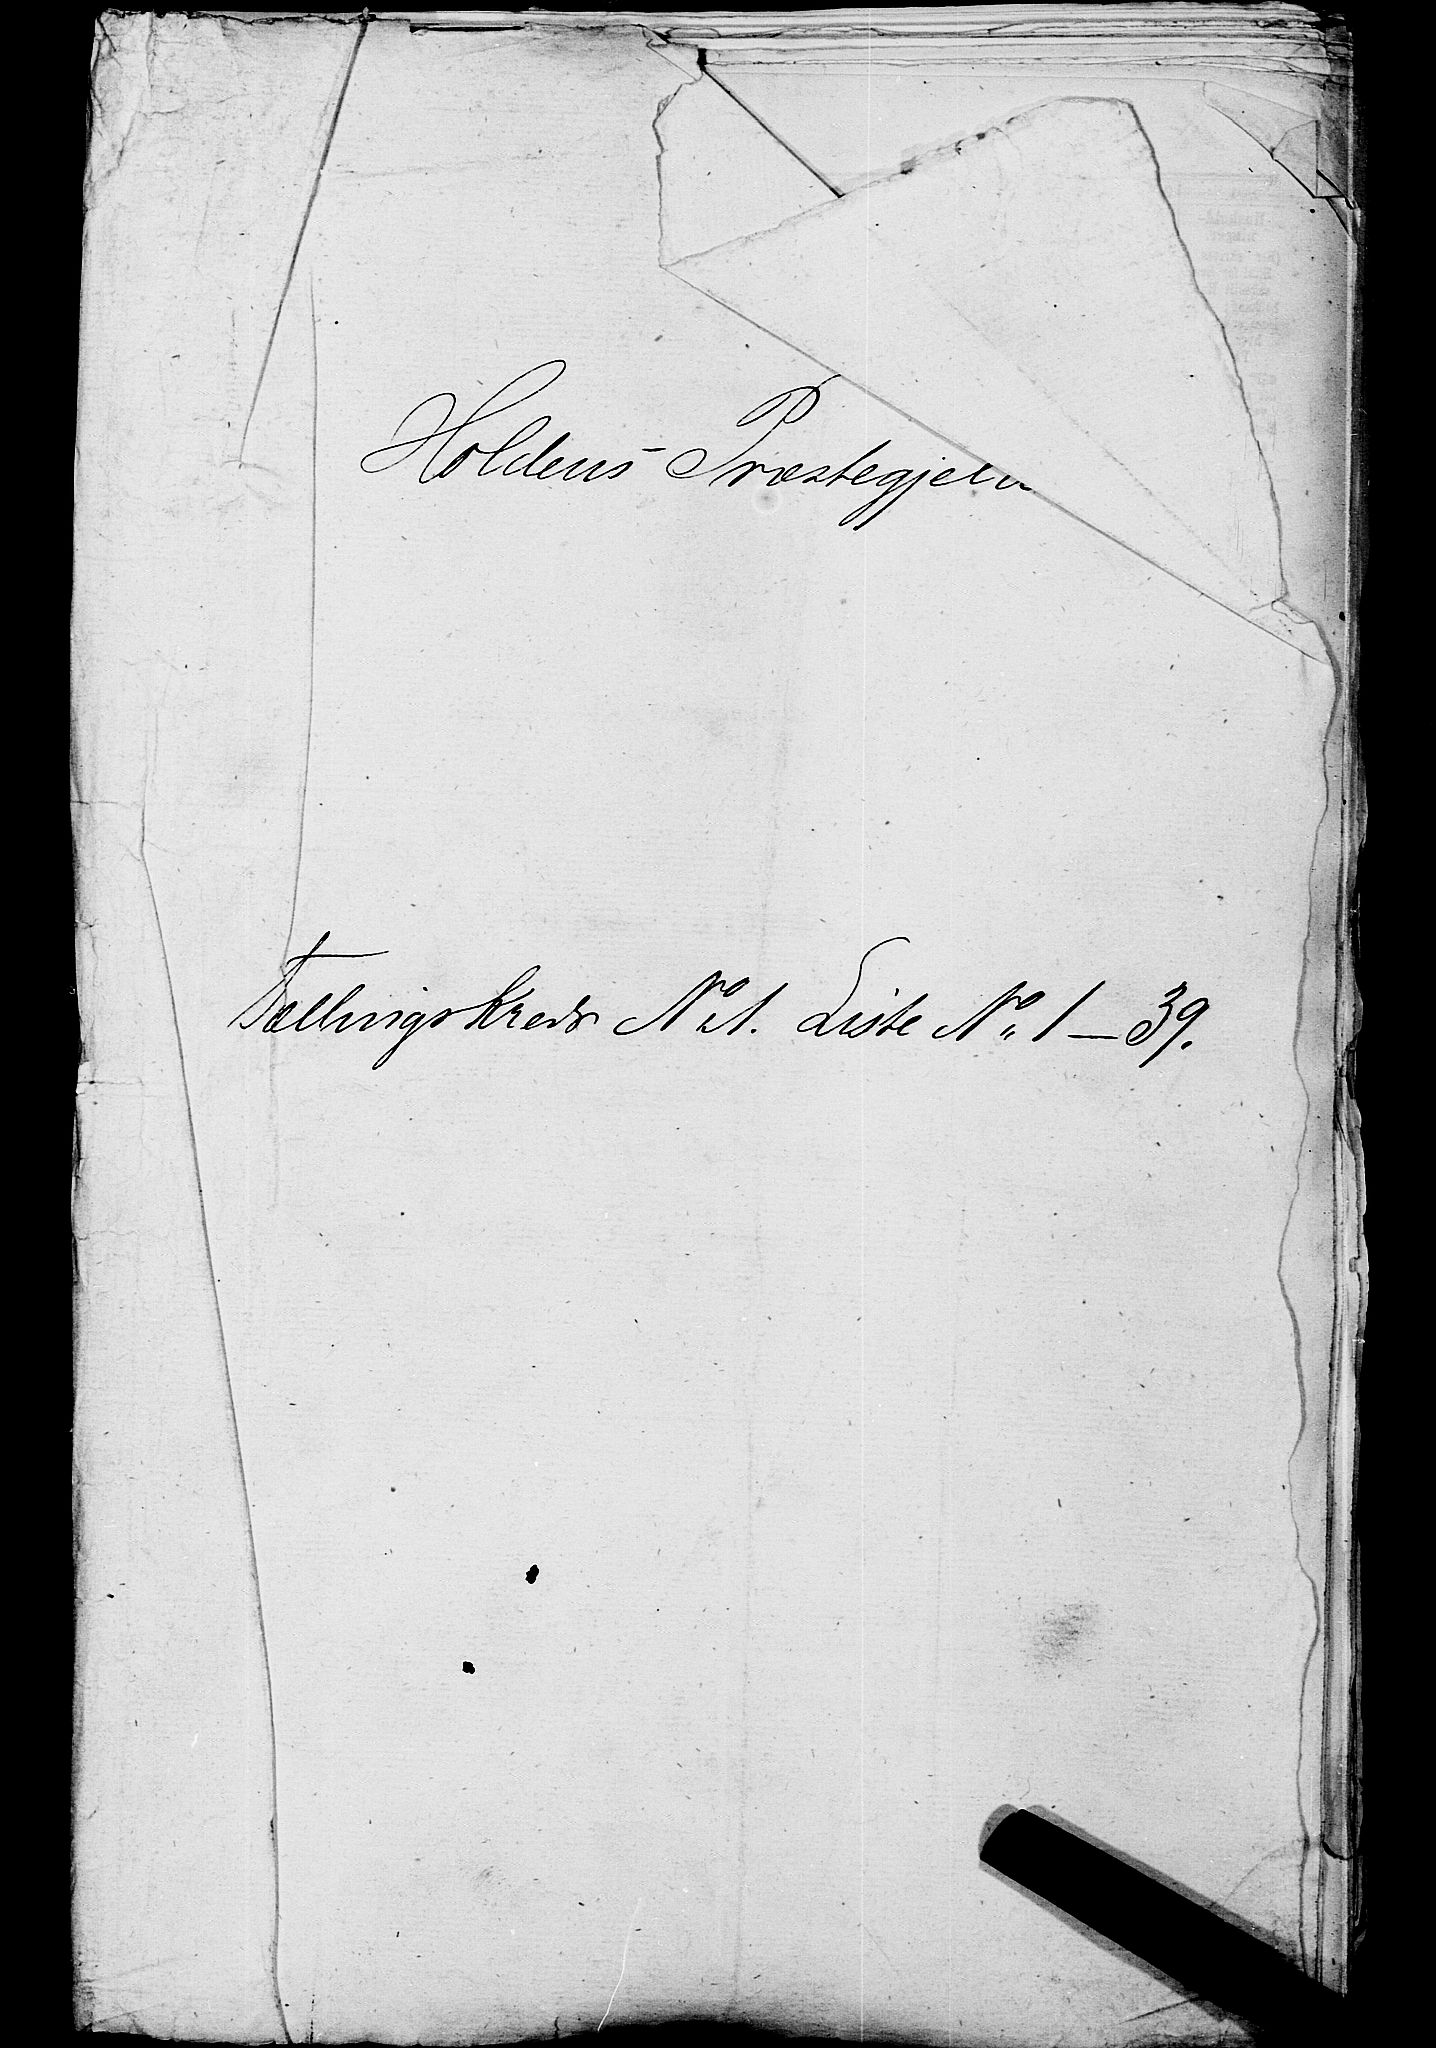 Holdens Præstegjeld
Tællingskreds No 1. Liste No 1 — 39.